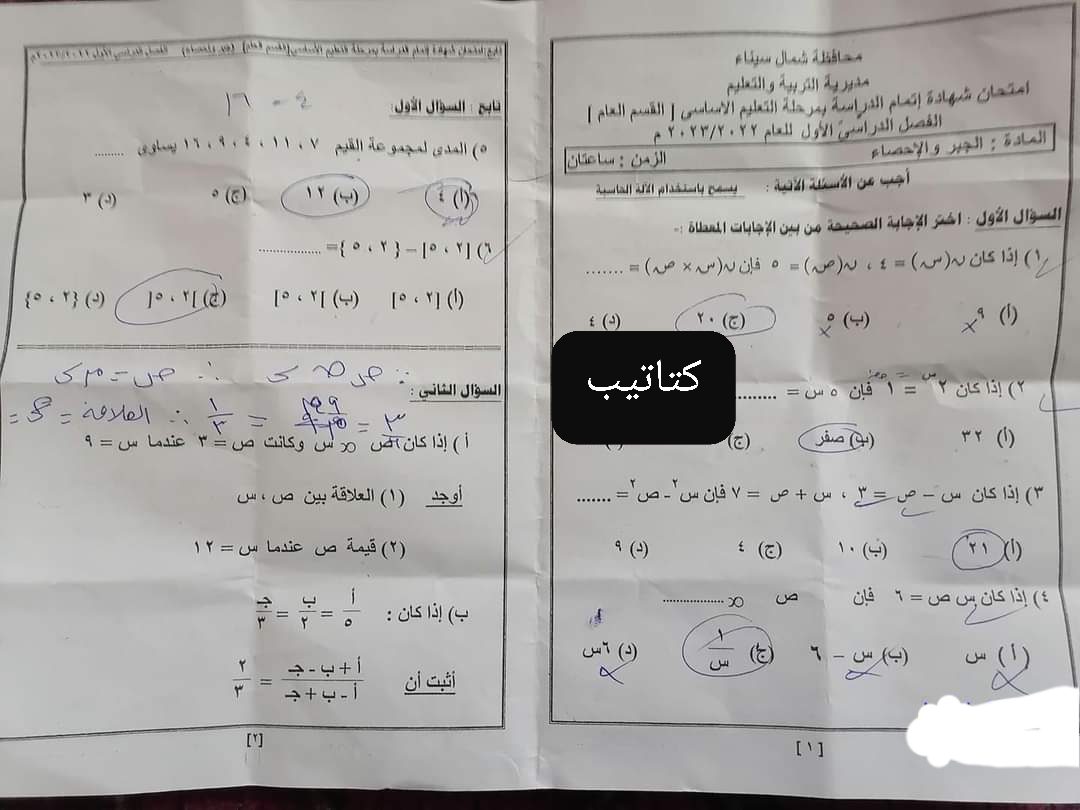 محافظة شمال سيناء
مديرية التربية والتعليم
امتحان شهادة إتمام الدراسة بمرحلة التعليم الأساسى [ القسم العام ]
الفصل الدراسى الأول للعام ٢٠٢٣/٢٠٢٢ م
المادة : الجبر والإحصاء الزمن : ساعتان
أجب عن الأسئلة الآتية : يسمح باستخدام الآلة الحاسبة
السؤال الأول : اختر الإجابة الصحيحة من بين الإجابات المعطاة :-
١) إذا كان ن(س) = ٤ ، ن(ص) = ٥ فإن ن(س × ص) = .......
(أ) ٩ (ب) ٥ (ج) ٢٠ (د) ٤
٢) إذا كان ٢س = ١ فإن ٥ س = ..........
(أ) ٣٢ (ب) صفر (ج)
٣) إذا كان س – ص = ٣ ، س + ص = ٧ فإن س٢ - ص٢ = .......
(أ) ٢١ (ب) ١٠ (ج) ٤ (د) ٩
٤) إذا كان س ص = ٦ فإن ص ∝ ..................
(أ) س (ب) س – ٦ (ج) ١/س (د) ٦س
[١]
كتاتيب
تابع امتحان شهادة إتمام الدراسة بمرحلة التعليم الأساسى [القسم العام] (جبر وإحصاء) الفصل الدراسى الأول ٢٠٢٣/٢٠٢٢م
٤ - ١٦
تابع : السؤال الأول:
٥) المدى لمجموعة القيم ٧ ، ١١ ، ٤ ، ٩ ، ١٦ يساوى ........
(أ) ٤ (ب) ١٢ (ج) ٥ (د) ٣
٦) [٢ ، ٥] – { ٢ ، ٥ } = ................
(أ) [٢ ، ٥] (ب) [٢ ، ٥[ (ج) ]٢ ، ٥[ (د) {٢ ، ٥}
∴ ص = م س
السؤال الثانى :
= ١/٣ ∴ العلاقة =
أ ) إذا كان ص ∝ س وكانت ص = ٣ عندما س = ٩
أوجد (١) العلاقة بين ص ، س
(٢) قيمة ص عندما س = ١٢
ب) إذا كان : أ/٥ = ب/٢ = جـ/٣
أثبت أن أ + ب - جـ / أ - ب + جـ = ٢/٣
[٢]